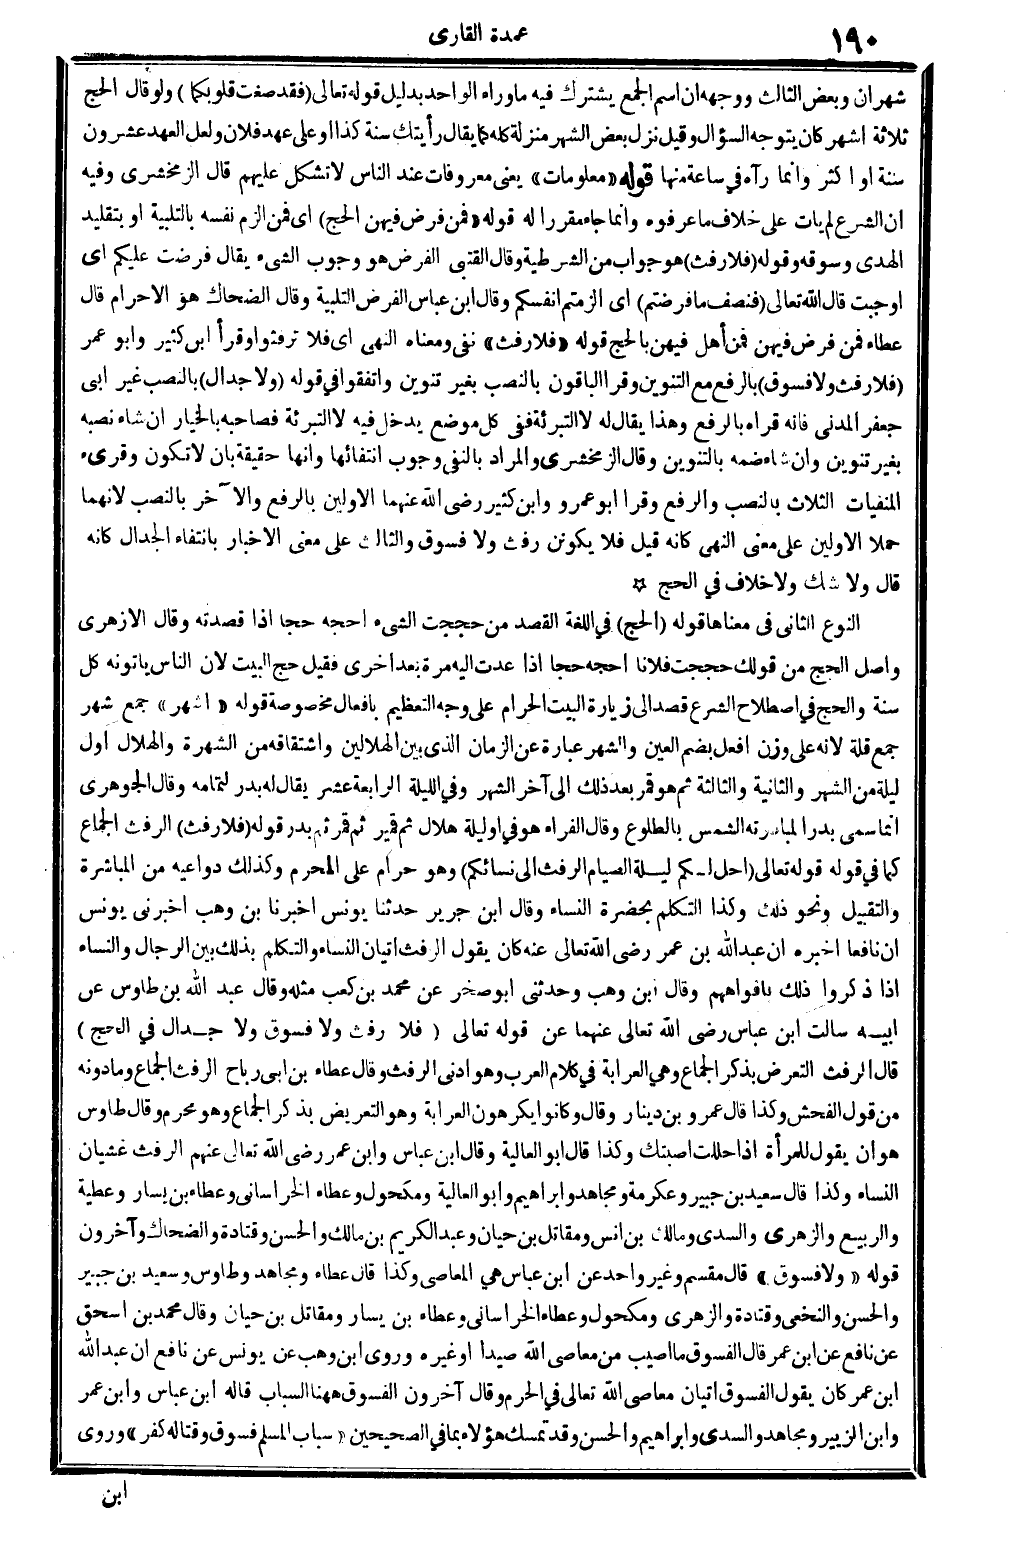 ١٩٠
عمدة القارى
شهران وبعض الثالث ووجهه ان اسم الجمع يشترك فيه ماوراء الواحد بدليل قوله تعالى (فقد صغت قلوبكما) ولو قال الحج
ثلاثة اشهر كان يتوجه السؤال وقيل نزل بعض الشهر منزلة كله كما يقال رأيتك سنة كذا او على عهد فلان ولعل العهد عشرون
سنة او اكثر وانما رآه في ساعة منها قوله «معلومات» يعنى معروفات عند الناس لاتشكل عليهم قال الزمخشرى وفيه
ان الشرع لم يات على خلاف ماعرفوه وانما جاء مقررا له قوله «فمن فرض فيهن الحج) اى فمن الزم نفسه بالتلبية او بتقليد
الهدى وسوقه وقوله (فلا رفث) هو جواب من الشرطية وقال القتبى الفرض هو وجوب الشىء يقال فرضت عليكم اى
اوجبت قال الله تعالى (فنصف مافرضتم) اى الزمتم انفسكم وقال ابن عباس الفرض التلبية وقال الضحاك هو الاحرام قال
عطاء فمن فرض فيهن فمن أهل فيهن بالحج قوله «فلا رفث» نفى ومعناه النهى اى فلا ترفثوا وقرأ ابن كثير وابو عمر
(فلا رفث ولا فسوق) بالرفع مع التنوين وقرا الباقون بالنصب بغير تنوين واتفقوا في قوله (ولا جدال) بالنصب غير ابى
جعفر المدنى فانه قراه بالرفع وهذا يقال له لا التبرئة ففى كل موضع يدخل فيه لا التبرئة فصاحبه بالخيار ان شاء نصبه
بغير تنوين وان شاء ضمه بالتنوين وقال الزمخشرى والمراد بالنفى وجوب انتفائها وانها حقيقة بان لاتكون وقرىء
المنفيات الثلاث بالنصب والرفع وقرا ابو عمرو وابن كثير رضى الله عنهما الاولين بالرفع والآخر بالنصب لانهما
حملا الاولين على معنى النهى كانه قيل فلا يكونن رفث ولا فسوق والثالث على معنى الاخبار بانتفاء الجدال كانه
قال ولا شك ولاخلاف في الحج ☆
النوع الثانى فى معناها قوله (الحج) في اللغة القصد من حججت الشىء احجه حجا اذا قصدته وقال الازهرى
واصل الحج من قولك حججت فلانا احجه حجا اذا عدت اليه مرة بعد اخرى فقيل حج البيت لان الناس ياتونه كل
سنة والحج في اصطلاح الشرع قصد الى زيارة البيت الحرام على وجه التعظيم بافعال مخصوصة قوله « اشهر » جمع شهر
جمع قلة لانه على وزن افعل بضم العين والشهر عبارة عن الزمان الذى بين الهلالين واشتقاقه من الشهرة والهلال اول
ليلة من الشهر والثانية والثالثة ثم هو قمر بعد ذلك الى آخر الشهر وفي الليلة الرابعة عشر يقال له بدر لتمامه وقال الجوهرى
انما سمى بدرا لمبادرته الشمس بالطلوع وقال الفراء هو في اول ليلة هلال ثم قمير ثم قمر ثم بدر قوله (فلا رفث) الرفث الجماع
كما في قوله قوله تعالى (احل لـكم ليـلة الصيام الرفث الى نسائكم) وهو حرام على المحرم وكذلك دواعيه من المباشرة
والتقبيل ونحو ذلك وكذا التكلم بحضرة النساء وقال ابن جرير حدثنا يونس اخبرنا بن وهب اخبرنى يونس
ان نافعا اخبره ان عبدالله بن عمر رضى الله تعالى عنه كان يقول الرفث اتيان النساء والتكلم بذلك بين الرجال والنساء
اذا ذكروا ذلك بافواههم وقال ابن وهب وحدثنى ابو صخر عن محمد بن كعب مثله وقال عبد الله بن طاوس عن
ابيـه سالت ابن عباس رضى الله تعالى عنهما عن قوله تعالى ( فلا رفث ولا فسوق ولا جـدال في الحج )
قال الرفث التعرض بذكر الجماع وهي العرابة في كلام العرب وهو ادنى الرفث وقال عطاء بن ابى رباح الرفث الجماع ومادونه
من قول الفحش وكذا قال عمرو بن دينار وقال وكانوا يكرهون العرابة وهو التعريض بذكر الجماع وهو محرم وقال طاوس
هو ان يقول للمرأة اذا حللت اصبتك وكذا قال ابو العالية وقال ابن عباس وابن عمر رضى الله تعالى عنهم الرفث غشيان
النساء وكذا قال سعيد بن جبير وعكرمة ومجاهد وابراهيم وابو العالية ومكحول وعطاء الخراسانى وعطاء بن يسار وعطية
والربيع والزهرى والسدى ومالك بن انس ومقاتل بن حيان وعبد الكريم بن مالك والحسن وقتادة والضحاك وآخرون
قوله « ولا فسوق » قال مقسم وغير واحد عن ابن عباس هي المعاصى وكذا قال عطاء ومجاهد وطاوس وسعيد بن جبير
والحسن والنخعى وقتادة والزهرى ومكحول وعطاء الخراسانى وعطاء بن يسار ومقاتل بن حيان وقال محمد بن اسحق
عن نافع عن ابن عمر قال الفسوق مااصيب من معاصى الله صيدا او غيره وروى ابن وهب عن يونس عن نافع ان عبدالله
ابن عمر كان يقول الفسوق اتيان معاصى الله تعالى في الحرم وقال آخرون الفسوق ههنا السباب قاله ابن عباس وابن عمر
وابن الزبير ومجاهد والسدى وابراهيم والحسن وقد تمسك هؤلاء بمافي الصحيحين « سباب المسلم فسوق وقتاله كفر » وروى
ابن